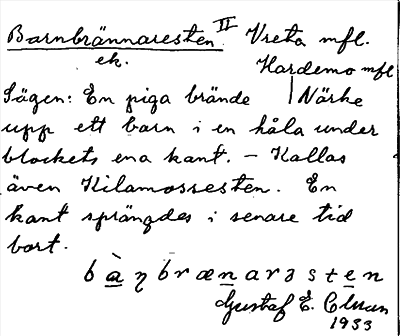 Barnbrännaresten II Vreta mfl.
ek. Hardemo mfl
Sägen: En piga brände Närke
upp ett barn i en håla under
blockets ena kant. – Kallas
även Kilamossesten. En
kant sprängdes i senare tid
bort.
b à ŋ b r æ n a r ə s t e n
Gustaf E.
1933